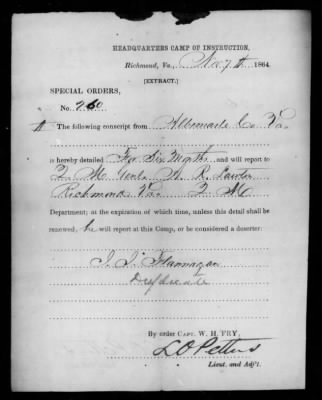 HEADQUARTERS CAMP OF INSTRUCTION,
Richmond, Va., Nov 7th 1864
[EXTRACT.]
SPECIAL ORDERS,
No. 260
The following conscript from Albemarle Co. Va.
is hereby detailed For Six Months and will report to
Q. M. Genl. A. R. Lawton
Richmond Va. Q M
Department; at the expiration of which time, unless this detail shall be
renewed, he will report at this Camp, or be considered a deserter:
Flannagan
Duplicate
By order CAPT. W. H. FRY,
Lieut. and Adj't.